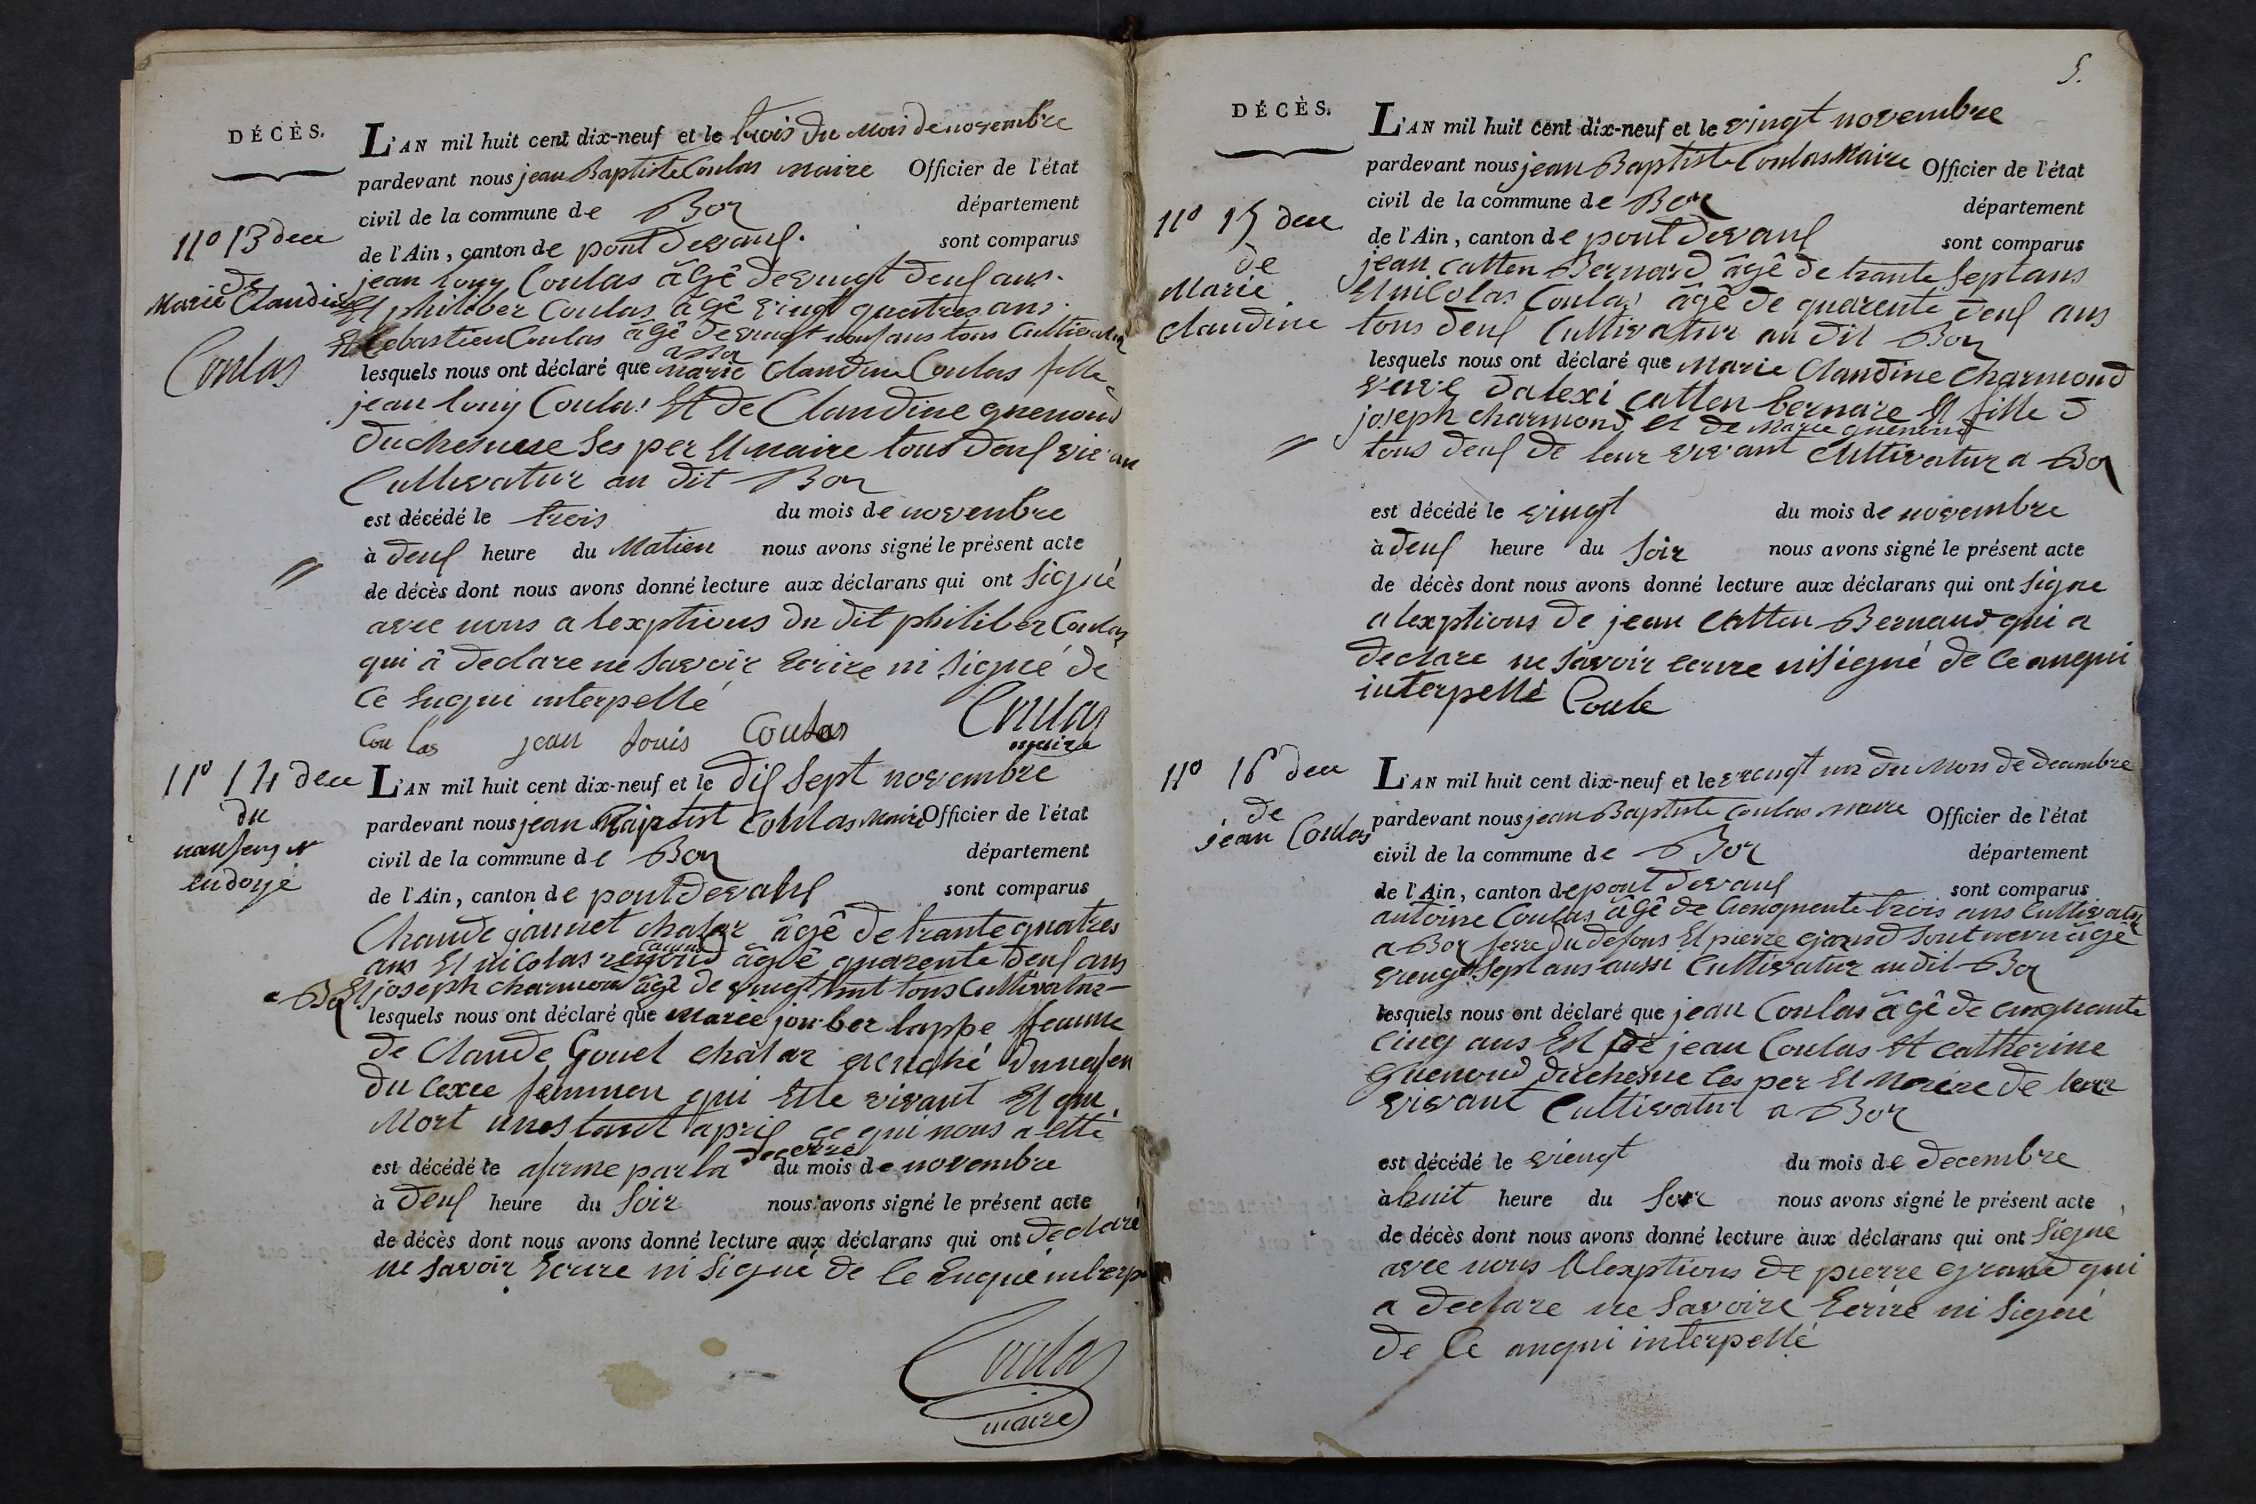 DÉCÈS.
L'AN mil huit cent dix-neuf et le trois du mois de novembre
pardevant nous jean Baptiste Coulas maire Officier de l'état
civil de la commune de Boz département
de l'Ain, canton de pont devauf. sont comparus
n° 13 dece
de
Marie Claudine
Coulas
jean louy Coulas âgê de vingt deuf ans.
Et philiber Coulas âgê vingt quatres ans.
Et Sebastien Coulas âgê de vingt neuf ans tous Cultivatur
a Boz
lesquels nous ont déclaré que marie Claudine Coulas fille
jean louy Coulas Et de Claudine guenoud
duchesnese ses per Et maire tous deuf vivan
Cultivatur au dit Boz
est décédé le trois du mois de novembre
à deuf heure du Matien nous avons signé le présent acte
de décès dont nous avons donné lecture aux déclarans qui ont signé
avec nous a lexptions du dit philiber Coulas
qui â declare ne savoir Ecrire ni signé de
Ce Enqui interpellé
Cou las jean louis Coulas Coulas
maire
n° 14 dece
du
endoyé
L'AN mil huit cent dix-neuf et le dif sept novembre
pardevant nous jean Baptist Coulas maire Officier de l'état
civil de la commune de Boz département
de l'Ain, canton de pont devauf sont comparus
Chaude jannet chatar âgê de trante quatres
ans Et nicolas âgê quarente deuf ans
a Boz Et joseph charmond âgê de vingt huit tous Cultivatur
lesquels nous ont déclaré que Marie jouber lappe femme
de Claude Gouet châtar acuché dun
du cexce femmen qui Ette vivant Et qui
Mort unestant aprif ce qui nous a Etté
est décédé le afirme par la du mois de novembre
à deuf heure du soir nous avons signé le présent acte
de décès dont nous avons donné lecture aux déclarans qui ont declaré
ne savoir Ecrire ni signé de Ce Enque interp
Coulas
maire
5.
DÉCÈS.
L'AN mil huit cent dix-neuf et le vingt novembre
pardevant nous jean Baptiste Coulas Maire Officier de l'état
civil de la commune de Boz département
de l'Ain, canton de pont devauf sont comparus
n° 15 dece
de
Marie
Claudine
jean catten Bernard âgê de trante sept ans
Et nicolas Coulas âgê de quarente deuf ans
tous deuf Cultivatur au dit Boz
lesquels nous ont déclaré que Marie Claudine Charmond
veuve dalexi catten bernare Et fille d
joseph charmond et de Marie guenoud
tous deuf de leur vivant Cultivatur a Boz
est décédé le vingt du mois de novembre
à deuf heure du soir nous avons signé le présent acte
de décès dont nous avons donné lecture aux déclarans qui ont signe
a lexptions de jean catten Bernaud qui a
declare ne savoir ecrire ni signé de Ce anqui
interpellé Coule
n° 16 dece
de
jean Coulas
L'AN mil huit cent dix-neuf et le viengt un du Mois de decembre
pardevant nous jean Baptiste Coulas maire Officier de l'état
civil de la commune de Boz département
de l'Ain, canton de pont devauf sont comparus
antoine Coulas âgê de Cienquente trois ans Cultivatur
a Boz ferre du defons Et pierre grand âgê
viengt sept ans aussi Cultivatur au dit Boz
lesquels nous ont déclaré que jean Coulas âgê de cinquante
Cinq ans Est de jean Coulas Et catherine
Guenoud duchesne ces per Et Maire de leur
vivant Cultivatur a Boz
est décédé le viengt du mois de decembre
à huit heure du Soir nous avons signé le présent acte
de décès dont nous avons donné lecture aux déclarans qui ont signé
avec nous a lexptions de pierre grand qui
a declare ne savoire Ecrire ni signé
de Ce anqui interpellé